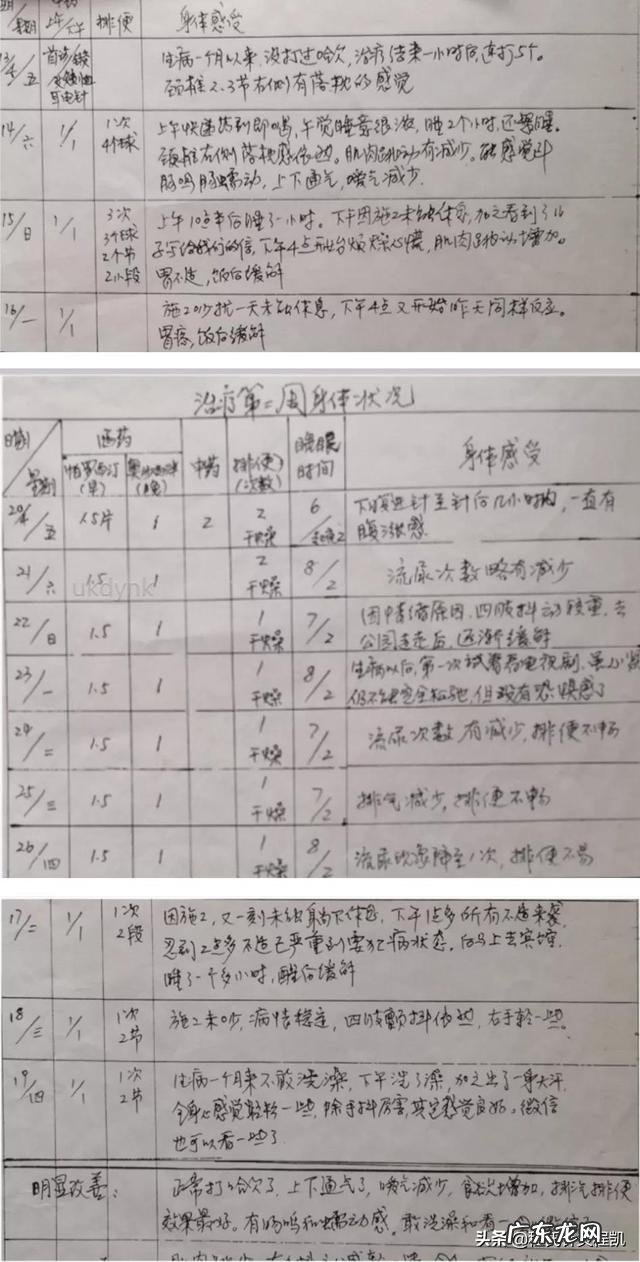 期/星期 上午/下午 排便 身体感受
13/五 首诊/针 耳电针
生病一个月以来,没打过哈欠,治疗结束一小时后,连打5个。
颈椎2、3节右侧有落枕的感觉
14/六 1/1 1次 4个球
上午快递药到即喝,午觉睡意很浓,睡2个小时,还要睡。
颈椎右侧落枕感依旧。肌肉跳动有减少。能感觉到
肠鸣肠蠕动,上下通气,嗳气减少。
15/日 1/1 3次 3个球 2个节 2小段
上午10点半后睡了一小时。下午因施工未能休息,加之看到了儿
子写给我们的信,下午4点开始烦燥心慌,肌肉跳动增加。
胃不适,饭后缓解
16/一 1/1
施工吵扰一天未能休息,下午4点又开始昨天同样反应。
胃疼,饭后缓解
治疗第二周身体状况
日期/星期 西药 中药 排便(次数) 睡眠时间 身体感受
帕罗西汀(早) (晚)
20/五 1.5片 1 2 2 干燥 6/2
下腹进针至针后几小时内,一直有
腹涨感
21/六 1.5 1 2 干燥 8/2 流尿次数略有减少
ukdynk
22/日 1.5 1 1 干燥 7/2
因情绪原因,四肢抖动较重,去
公园走走后,逐渐缓解
23/一 1.5 1 1 干燥 8/2
生病以后,第一次试着看电视剧,虽
仍不能完全松弛,但没有恐惧感了
24/二 1.5 1 1 干燥 7/2 流尿次数有减少,排便不畅
25/三 1.5 1 1 干燥 7/2 排气减少,排便不畅
26/四 1.5 1 1 干燥 8/2 流尿现象降至1次,排便不易
17/二 1/1 1次 2段
因施工,又一刻未能躺下休息,下午1点多所有不适来袭,
忍到2点多不适已严重到要犯病状态,后马上去宾馆,
睡了一个多小时,醒后缓解
18/三 1/1 1次 2节
施工未吵,病情稳定,四肢颤抖依旧,右手轻一些。
19/四 1/1 1次 2节
生病一个月来不敢洗澡,下午洗了澡,加之出了一身大汗,
全身心感觉轻松一些,除手抖厉害,其它感觉良好。微信
也可以看一些了
明显改善:
正常打哈欠了,上下通气了,嗳气减少,食欲增加,排气排便
效果最好。有肠鸣和蠕动感,敢洗澡和看一
头条@
广东龙网